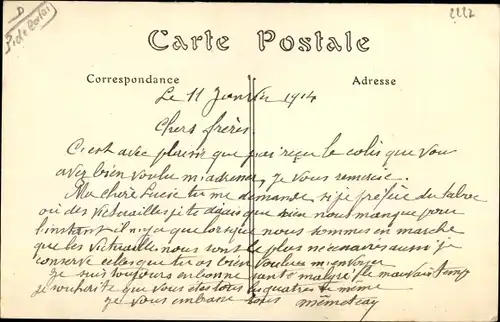 D
2227
Carte Postale
Correspondance
Adresse
Le 11 Janvier 1914
Chers frères.
C'est avec plaisir que j'ai reçu le colis que vous
avez bien voulu m'adresser, je vous remercie.
Ma chère Lucie tu me demande, si je préfère du tabac
ou des victuailles je te dirais que rien nous manque pour
l'instant il n'y a que lorsque nous sommes en marche
que les victuailles nous sont le plus nécessaires aussi je
conserve celles que tu as bien voulu m'envoyer
Je suis toujours en bonne santé malgré le mauvais temps
je souhaite que vous êtes tous les quatres de même
je vous embrasse tous